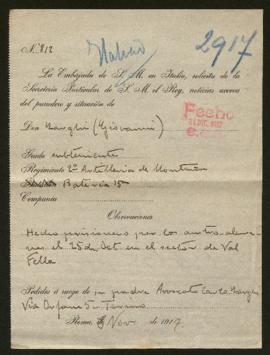 N.º 812
Italia
2917
La Embajada de S. M. en Italia, solicita de la
Secretaría Particular de S. M. el Rey, noticias acerca
del paradero y situación de
Don (Giovanni)
Grado subteniente
Regimiento 2º Artilleria de Montaña
Batería 15
Compañía
Observaciones
Hecho prisionero por los austro-alema-
nes el 25 de Oct en el sector de Val
Fella
Pedidos á ruego de su padre Avvocato
Via Torino
Roma, Nov de 1917
Fecho
DIC. 1917